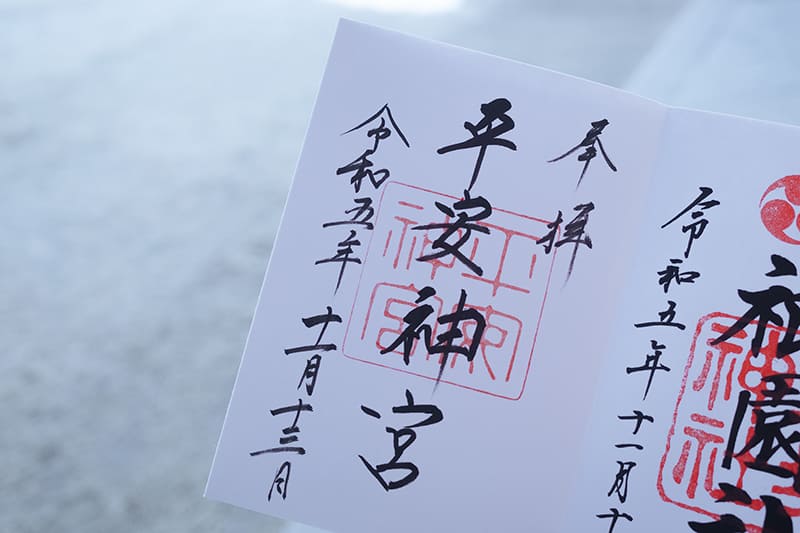 祇園
令和五年十一月十
奉拝
平安神宮
平安
神宮
令和五年十一月十三日